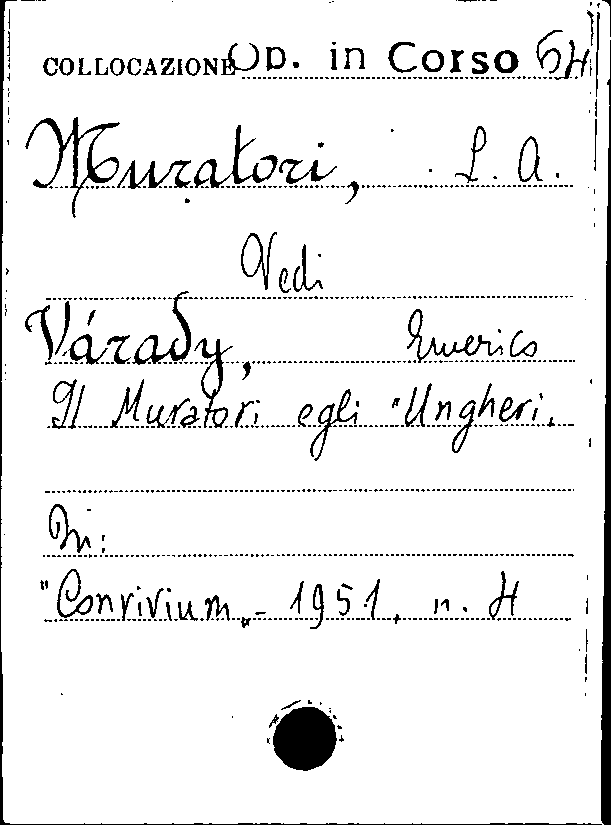 COLLOCAZIONE Op. in Corso 64
Muratori, L. A.
Vedi
Várady, Emerico
Il Muratori egli "Ungheri.
In:
"Convivium„- 1951, n. 4